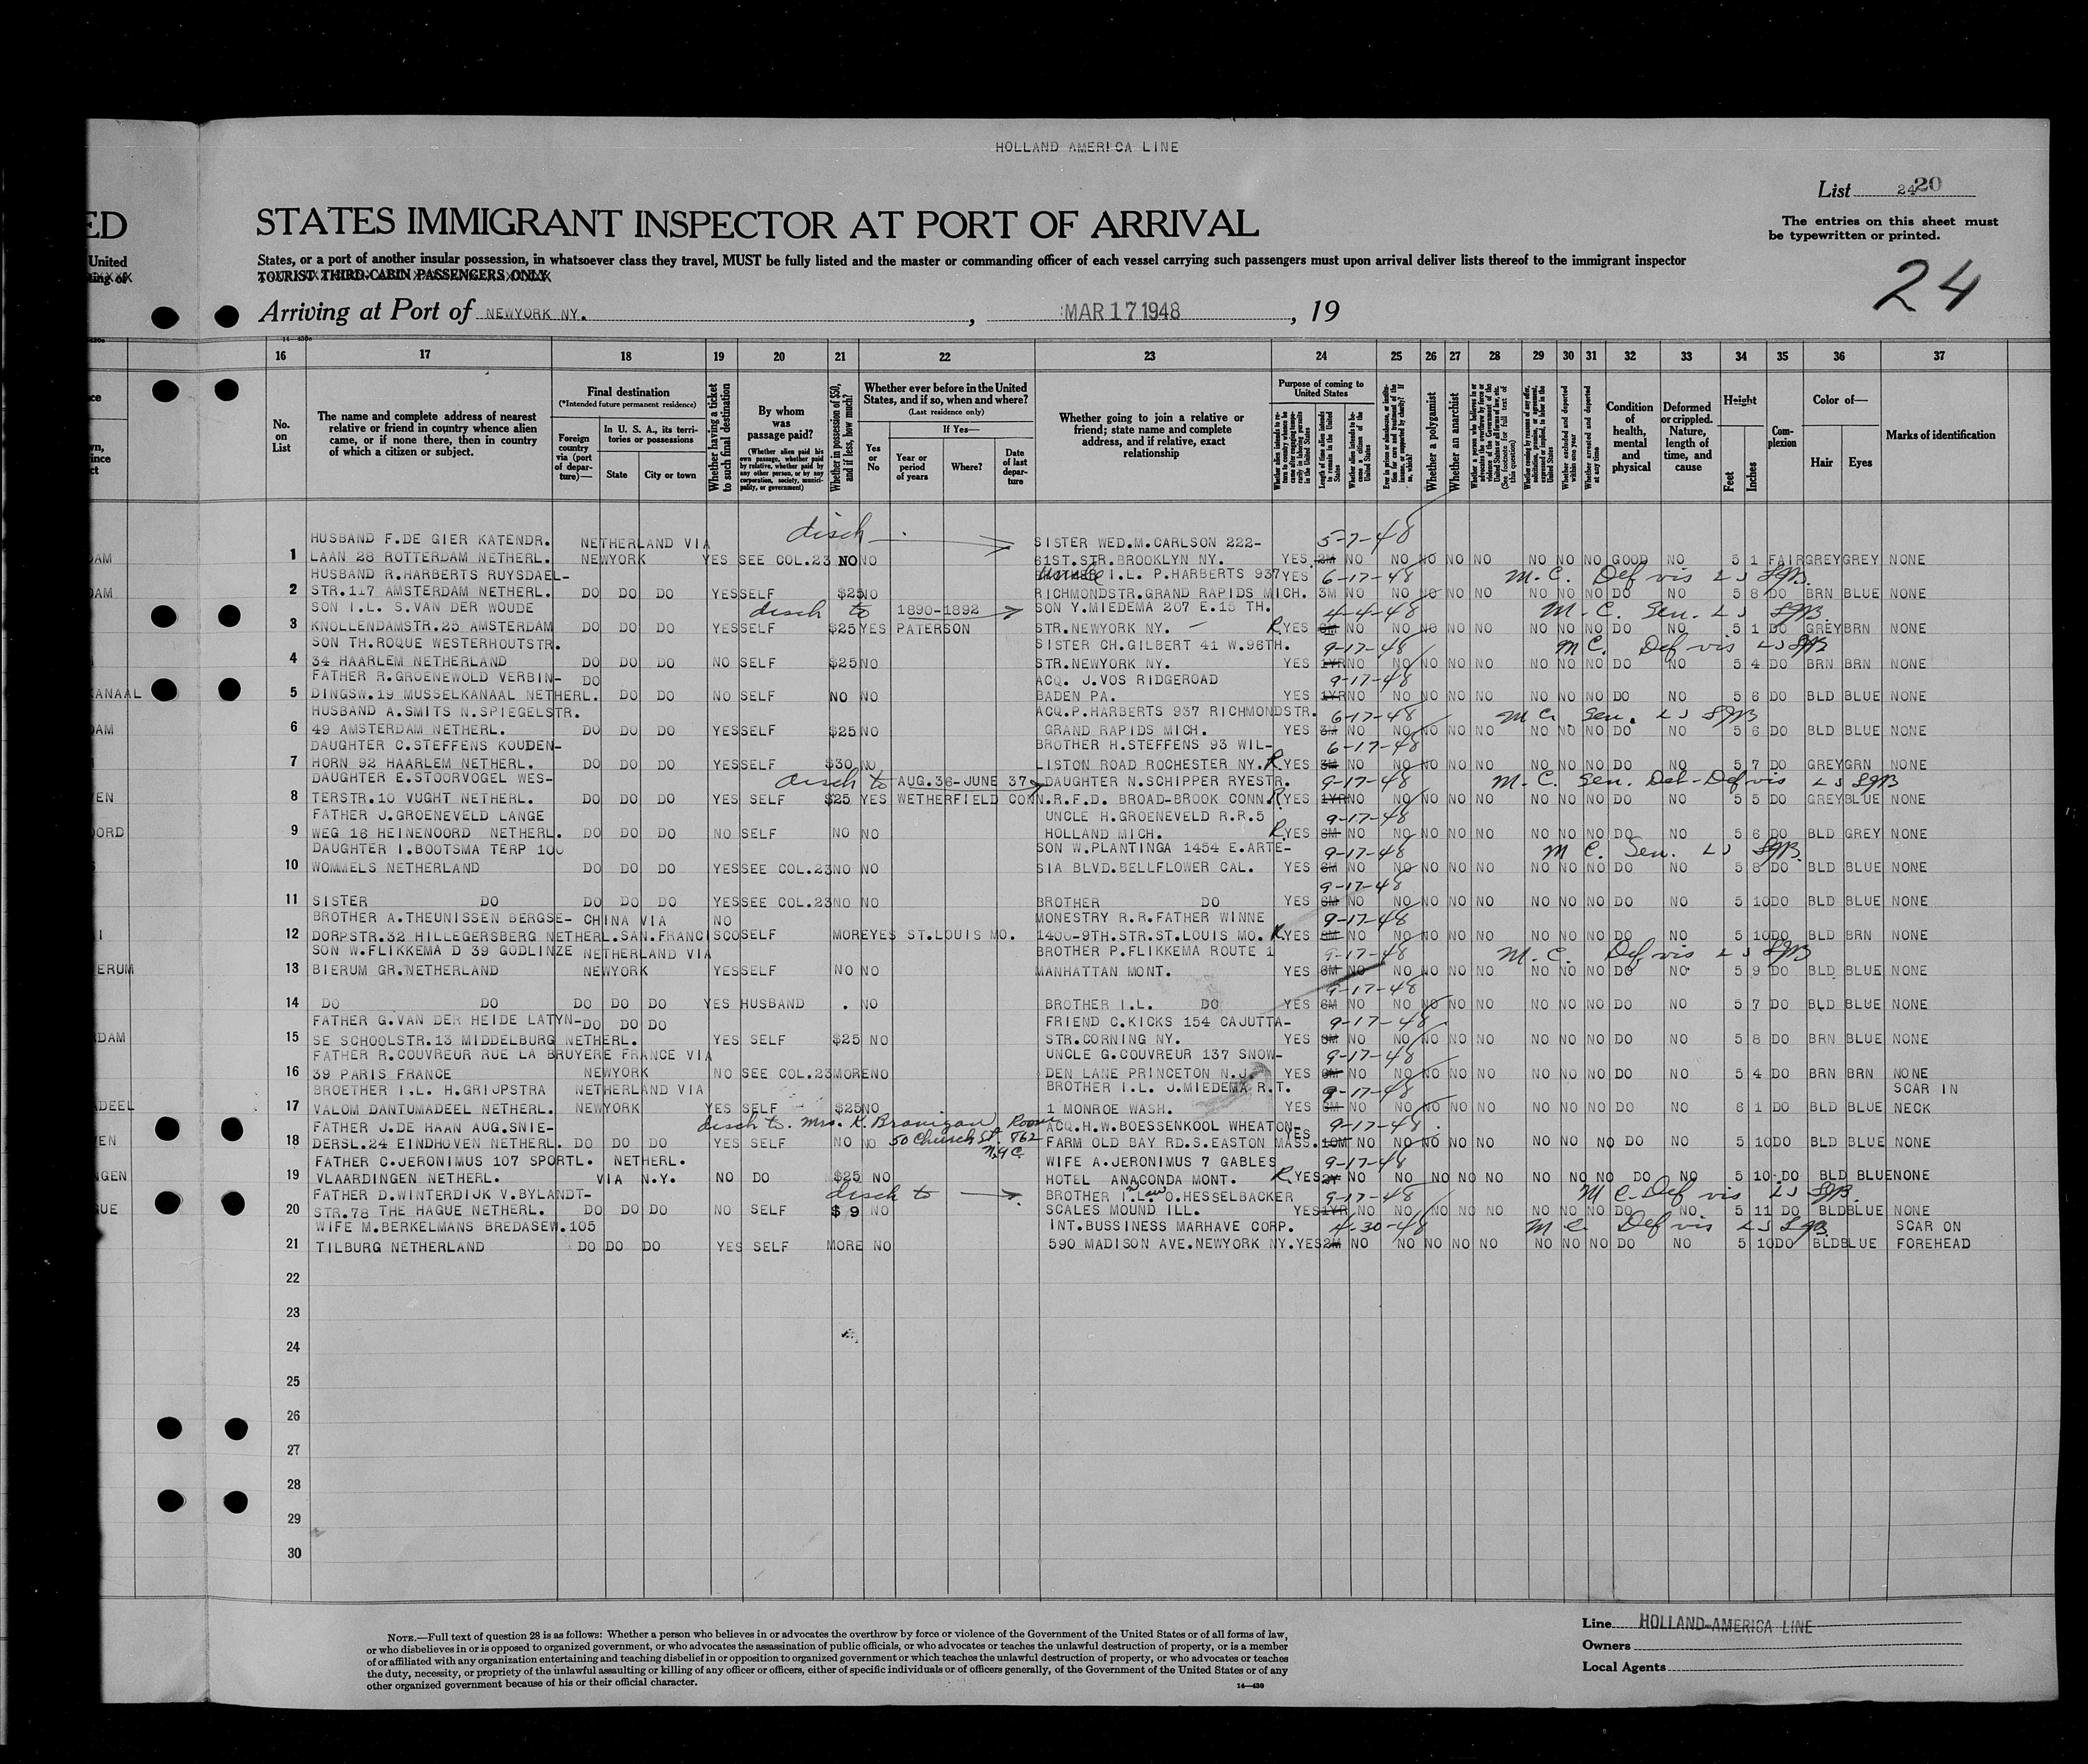 HOLLAND AMERICA LINE
List 24 20
ED
STATES IMMIGRANT INSPECTOR AT PORT OF ARRIVAL
The entries on this sheet must
be typewritten or printed.
United
States, or a port of another insular possession, in whatsoever class they travel, MUST be fully listed and the master or commanding officer of each vessel carrying such passengers must upon arrival deliver lists thereof to the immigrant inspector
TOURIST THIRD-CABIN PASSENGERS ONLY
24
Arriving at Port of NEWYORK NY. , MAR 17 1948 , 19
16 17 18 19 20 21 22 23 24 25 26 27 28 29 30 31 32 33 34 35 36 37
No. on List
The name and complete address of nearest relative or friend in country whence alien came, or if none there, then in country of which a citizen or subject.
Final destination
(*Intended future permanent residence)
Foreign country via (port of departure)—
In U. S. A., its territories or possessions
State
City or town
Whether having a ticket to such final destination
By whom was passage paid?
(Whether alien paid his own passage, whether paid by relative, whether paid by any other person, or by any corporation, society, municipality, or government)
Whether in possession of $50, and if less, how much?
Whether ever before in the United States, and if so, when and where?
(Last residence only)
Yes or No
If Yes—
Year or period of years
Where?
Date of last departure
Whether going to join a relative or friend; state name and complete address, and if relative, exact relationship
Purpose of coming to United States
Whether a polygamist
Whether an anarchist
Condition of health, mental and physical
Deformed or crippled. Nature, length of time, and cause
Height
Feet
Inches
Complexion
Color of—
Hair
Eyes
Marks of identification
disch
HUSBAND F.DE GIER KATENDR. NETHERLAND VIA SISTER WED.M.CARLSON 222- 5-7-48
1 LAAN 28 ROTTERDAM NETHERL. NEWYORK YES SEE COL.23 NO NO 61ST.STR.BROOKLYN NY. YES 2M NO NO NO NO NO NO NO NO GOOD NO 5 1 FAIR GREY GREY NONE
HUSBAND R.HARBERTS RUYSDAEL- I.L. P.HARBERTS 937 YES 6-17-48 M.C. Def vis LJ
2 STR.117 AMSTERDAM NETHERL. DO DO DO YES SELF $25 NO RICHMONDSTR.GRAND RAPIDS MICH. 3M NO NO NO NO NO NO NO NO DO NO 5 8 DO BRN BLUE NONE
SON I.L. S.VAN DER WOUDE disch to 1890-1892 SON Y.MIEDEMA 207 E.15 TH. 4-4-48 M.C. Sen. LJ
3 KNOLLENDAMSTR.25 AMSTERDAM DO DO DO YES SELF $25 YES PATERSON STR.NEWYORK NY. R YES NO NO NO NO NO NO NO NO DO NO 5 1 DO GREY BRN NONE
SON TH.ROQUE WESTERHOUTSTR. SISTER CH.GILBERT 41 W.96TH. 9-17-48 M.C. Def vis LJ
4 34 HAARLEM NETHERLAND DO DO DO NO SELF $25 NO STR.NEWYORK NY. YES 1YR NO NO NO NO NO NO NO NO DO NO 5 4 DO BRN BRN NONE
FATHER R.GROENEWOLD VERBIN- DO ACQ. J.VOS RIDGEROAD 9-17-48
5 DINGSW.19 MUSSELKANAAL NETHERL. DO DO NO SELF NO NO BADEN PA. YES 1YR NO NO NO NO NO NO NO NO DO NO 5 6 DO BLD BLUE NONE
HUSBAND A.SMITS N.SPIEGELSTR. ACQ.P.HARBERTS 937 RICHMONDSTR. 6-17-48 M.C. Sen. LJ
6 49 AMSTERDAM NETHERL. DO DO DO YES SELF $25 NO GRAND RAPIDS MICH. YES 3M NO NO NO NO NO NO NO NO DO NO 5 6 DO BLD BLUE NONE
DAUGHTER C.STEFFENS KOUDEN- BROTHER H.STEFFENS 93 WIL- 6-17-48
7 HORN 92 HAARLEM NETHERL. DO DO DO YES SELF $30 NO LISTON ROAD ROCHESTER NY. R YES 3M NO NO NO NO NO NO NO NO DO NO 5 7 DO GREY GRN NONE
DAUGHTER E.STOORVOGEL WES- disch to AUG.36-JUNE 37 DAUGHTER N.SCHIPPER RYESTR. 9-17-48 M.C. Sen. Deb-Def vis LJ
8 TERSTR.10 VUGHT NETHERL. DO DO DO YES SELF $25 YES WETHERFIELD CONN. R.F.D. BROAD-BROOK CONN. R YES 1YR NO NO NO NO NO NO NO NO DO NO 5 5 DO GREY BLUE NONE
FATHER J.GROENEVELD LANGE UNCLE H.GROENEVELD R.R.5 9-17-48
9 WEG 16 HEINENOORD NETHERL. DO DO DO NO SELF NO NO HOLLAND MICH. R YES 6M NO NO NO NO NO NO NO NO DO NO 5 6 DO BLD GREY NONE
DAUGHTER I.BOOTSMA TERP 100 SON W.PLANTINGA 1454 E.ARTE- 9-17-48 M.C. Sen. LJ
10 WOMMELS NETHERLAND DO DO DO YES SEE COL.23 NO NO SIA BLVD.BELLFLOWER CAL. YES 6M NO NO NO NO NO NO NO NO DO NO 5 8 DO BLD BLUE NONE
9-17-48
11 SISTER DO DO DO DO YES SEE COL.23 NO NO BROTHER DO YES 6M NO NO NO NO NO NO NO NO DO NO 5 10 DO BLD BLUE NONE
BROTHER A.THEUNISSEN BERGSE- CHINA VIA NO MONESTRY R.R.FATHER WINNE 9-17-48
12 DORPSTR.32 HILLEGERSBERG NETHERL. SAN.FRANCISCO SELF MORE YES ST.LOUIS MO. 1400-9TH.STR.ST.LOUIS MO. R YES 6M NO NO NO NO NO NO NO NO DO NO 5 10 DO BLD BRN NONE
SON W.FLIKKEMA D 39 GODLINZE NETHERLAND VIA BROTHER P.FLIKKEMA ROUTE 1 9-17-48 M.C. Def vis LJ
13 BIERUM GR.NETHERLAND NEWYORK YES SELF NO NO MANHATTAN MONT. YES 6M NO NO NO NO NO NO NO NO DO NO 5 9 DO BLD BLUE NONE
9-17-48
14 DO DO DO DO DO YES HUSBAND . NO BROTHER I.L. DO YES 6M NO NO NO NO NO NO NO NO DO NO 5 7 DO BLD BLUE NONE
FATHER G.VAN DER HEIDE LATYN- DO DO DO FRIEND C.KICKS 154 CAJUTTA- 9-17-48
15 SE SCHOOLSTR.13 MIDDELBURG NETHERL. YES SELF $25 NO STR.CORNING NY. YES 6M NO NO NO NO NO NO NO NO DO NO 5 8 DO BRN BLUE NONE
FATHER R.COUVREUR RUE LA BRUYERE FRANCE VIA UNCLE G.COUVREUR 137 SNOW- 9-17-48
16 39 PARIS FRANCE NEWYORK NO SEE COL.23 MORE NO DEN LANE PRINCETON N.J. YES 6M NO NO NO NO NO NO NO NO DO NO 5 4 DO BRN BRN NONE
BROETHER I.L. H.GRIJPSTRA NETHERLAND VIA BROTHER I.L. J.MIEDEMA R.T. 9-17-48 SCAR IN
17 VALOM DANTUMADEEL NETHERL. NEWYORK YES SELF $25 NO 1 MONROE WASH. YES 6M NO NO NO NO NO NO NO NO DO NO 6 1 DO BLD BLUE NECK
FATHER J.DE HAAN AUG.SNIE- disch to. Mrs. K. Branigan Room ACQ.H.W.BOESSENKOOL WHEATON- 9-17-48
18 DERSL.24 EINDHOVEN NETHERL. DO DO DO YES SELF NO NO 50 Church St. 862 N.Y.C. FARM OLD BAY RD.S.EASTON MASS. YES 10M NO NO NO NO NO NO NO NO DO NO 5 10 DO BLD BLUE NONE
FATHER C.JERONIMUS 107 SPORTL. NETHERL. WIFE A.JERONIMUS 7 GABLES 9-17-48
19 VLAARDINGEN NETHERL. VIA N.Y. NO DO $25 NO HOTEL ANACONDA MONT. R YES 2Y NO NO NO NO NO NO NO NO DO NO 5 10 DO BLD BLUE NONE
FATHER D.WINTERDIJK V.BYLANDT- disch to BROTHER in Law O.HESSELBACKER 9-17-48 M.C. Def vis LJ
20 STR.78 THE HAGUE NETHERL. DO DO DO NO SELF $ 9 NO SCALES MOUND ILL. YES 1YR NO NO NO NO NO NO NO NO DO NO 5 11 DO BLD BLUE NONE
WIFE M.BERKELMANS BREDASEW.105 INT.BUSSINESS MARHAVE CORP. 4-30-48 M.C. Def vis LJ SCAR ON
21 TILBURG NETHERLAND DO DO DO YES SELF MORE NO 590 MADISON AVE.NEWYORK NY. YES 2M NO NO NO NO NO NO NO NO DO NO 5 10 DO BLD BLUE FOREHEAD
22
23
24
25
26
27
28
29
30
NOTE.—Full text of question 28 is as follows: Whether a person who believes in or advocates the overthrow by force or violence of the Government of the United States or of all forms of law,
or who disbelieves in or is opposed to organized government, or who advocates the assassination of public officials, or who advocates or teaches the unlawful destruction of property, or is a member
of or affiliated with any organization entertaining and teaching disbelief in or opposition to organized government or which teaches the unlawful destruction of property, or who advocates or teaches
the duty, necessity, or propriety of the unlawful assaulting or killing of any officer or officers, either of specific individuals or of officers generally, of the Government of the United States or of any
other organized government because of his or their official character.
14—430
Line HOLLAND-AMERICA LINE
Owners
Local Agents